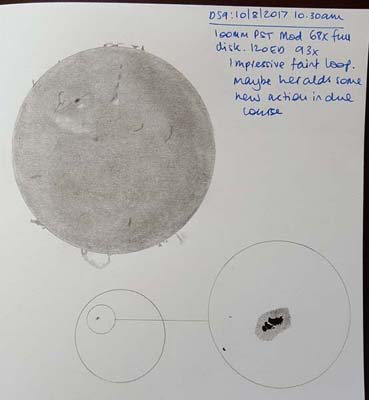 DS9: 10/8/2017 10.30am
100mm PST Mod 68x full
disk. 120ED 93x
Impressive faint loop.
Maybe heralds some
new action in due
course